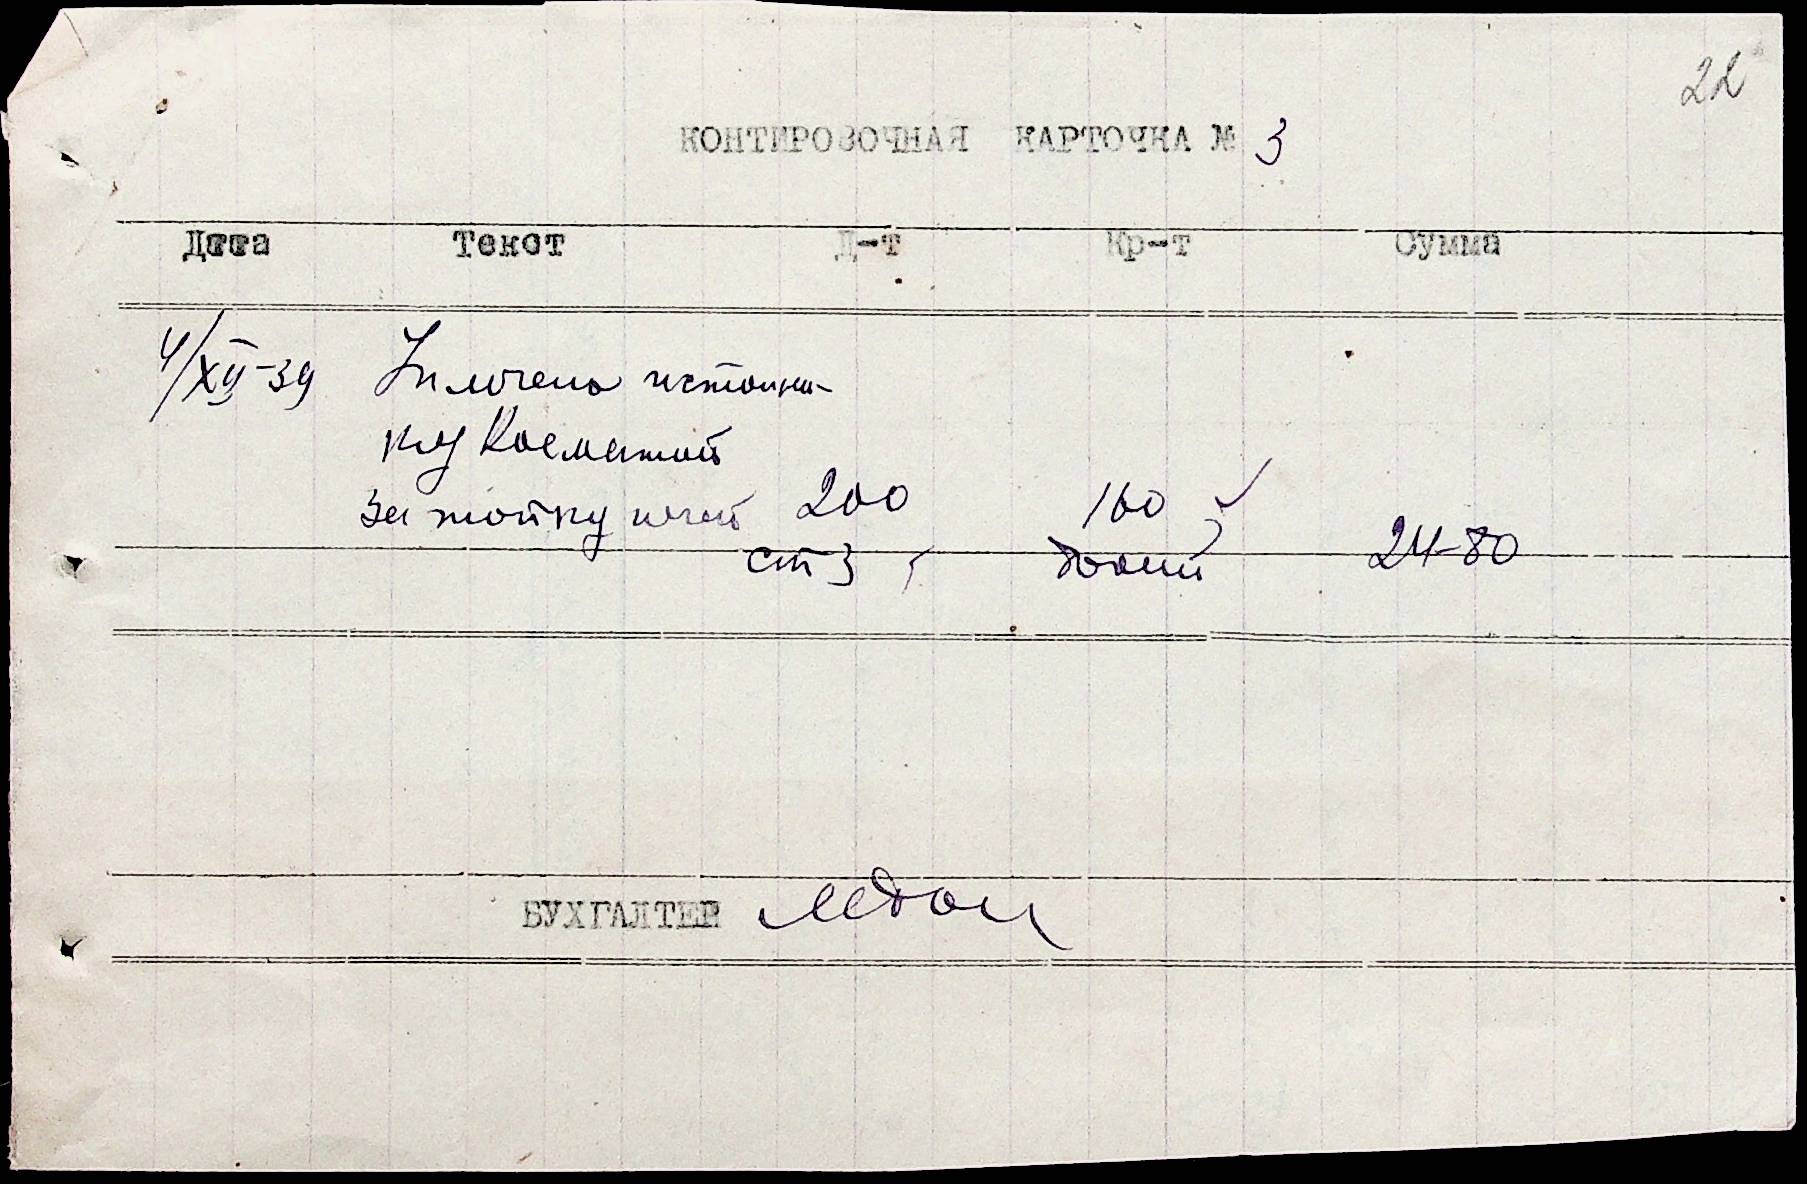 22
КОНТИРОВОЧНАЯ КАРТОЧКА № 3
Дата Текст Д-т Кр-т Сумма
4/XII-39 Уплочено истопни-
ку Косматой
за топку печей 200 160
ст 3 24-80
БУХГАЛТЕР